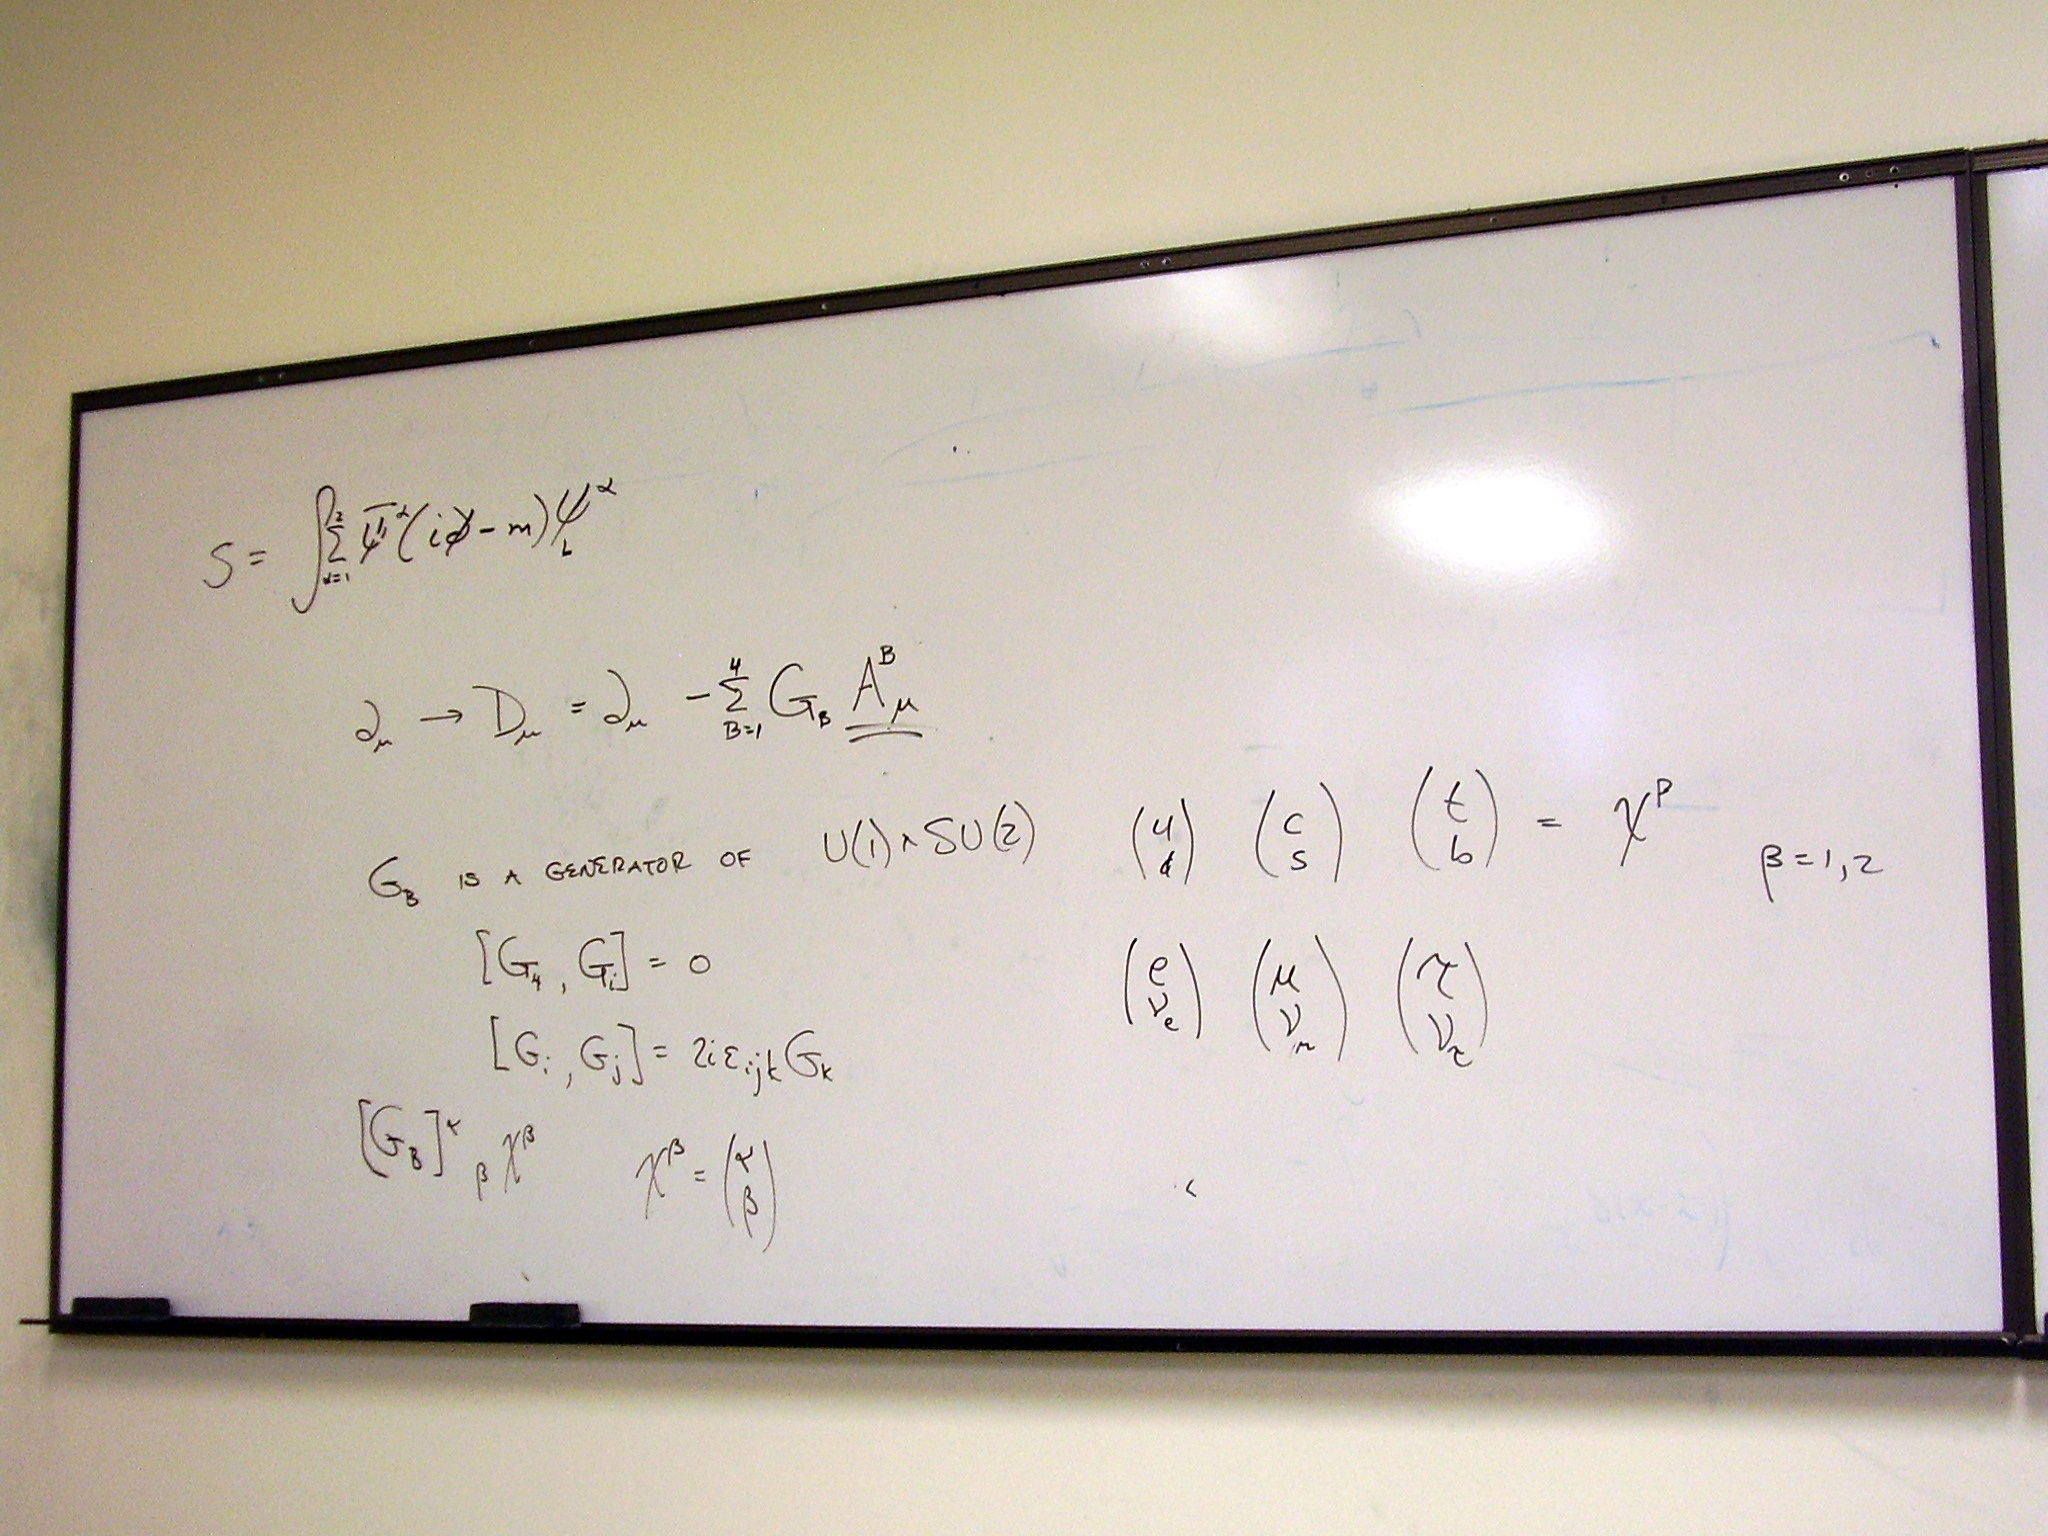 S = ∫ Σ_{α=1}^{2} ψ̄^α (i∂̸ - m) ψ_L^α
∂_μ → D_μ = ∂_μ - Σ_{B=1}^{4} G_B A_μ^B
G_B IS A GENERATOR OF U(1) × SU(2)
[G_4, G_i] = 0
[G_i, G_j] = 2iε_{ijk} G_k
[G_B]^α_β χ^β χ^β = (α β)
(u d) (c s) (t b) = χ^β β = 1, 2
(e ν_e) (μ ν_μ) (τ ν_τ)